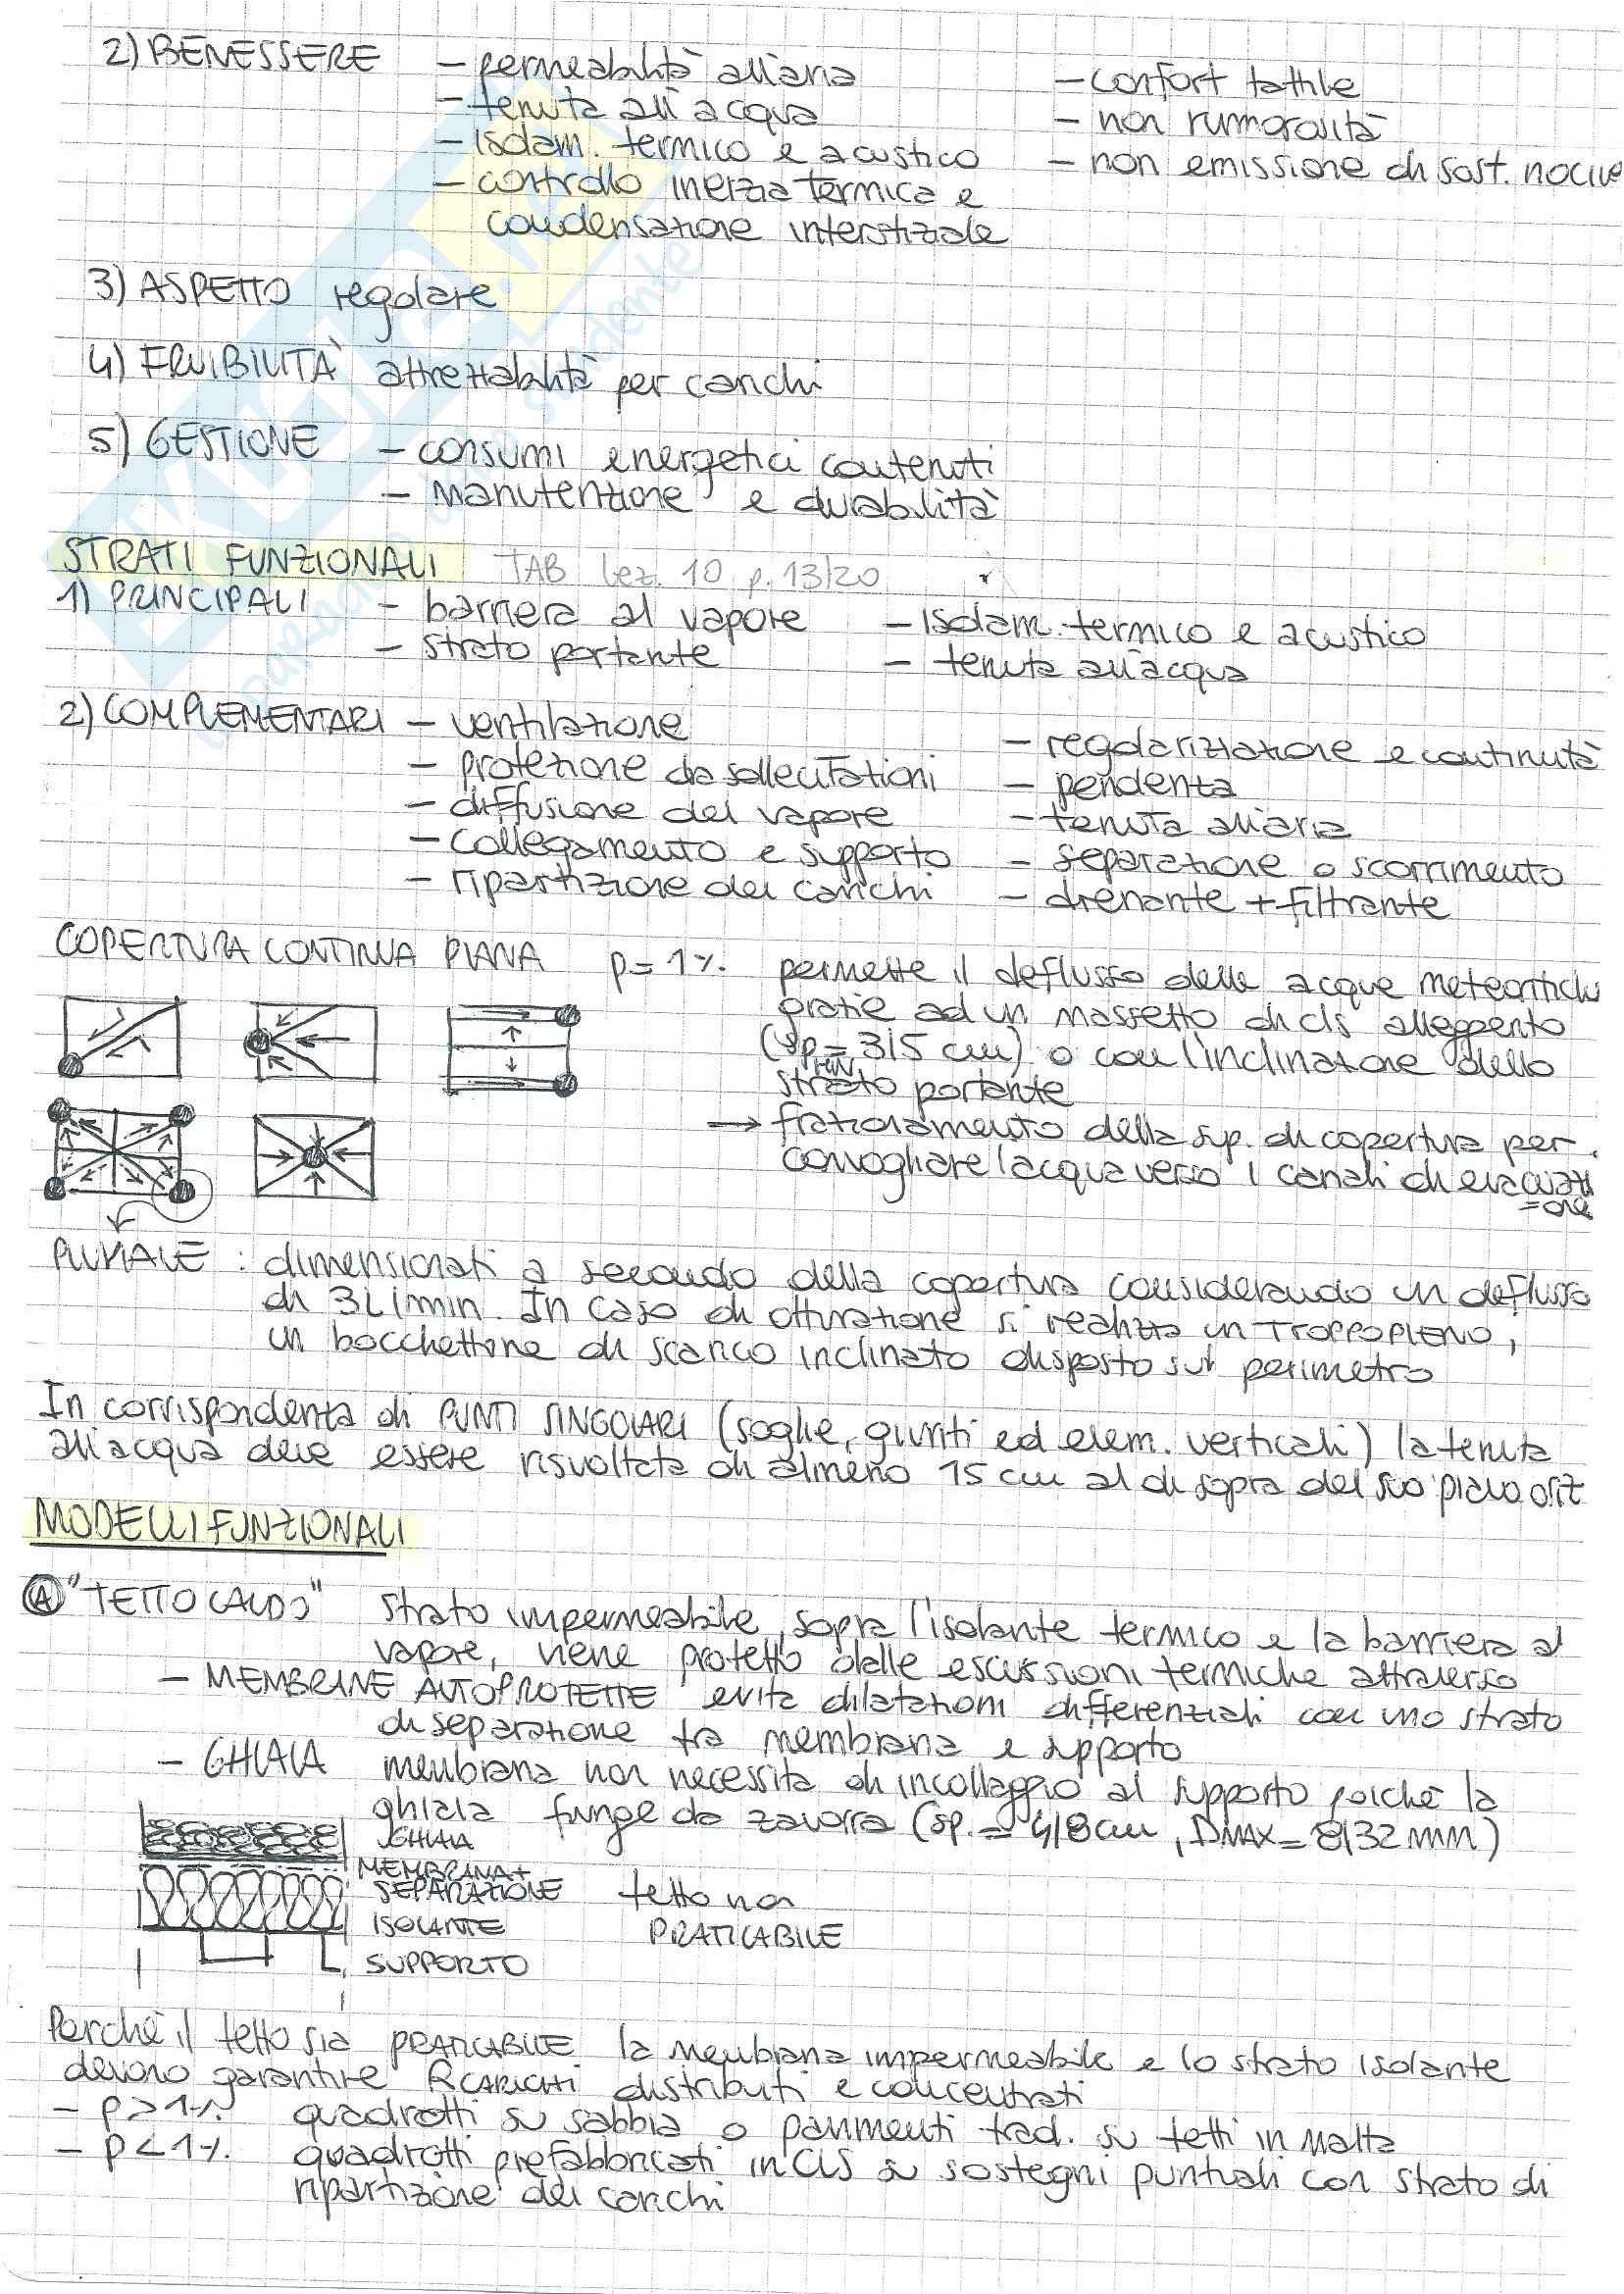 2) BENESSERE – permeabilità all'aria – confort tattile
– tenuta all'acqua – non rumorosità
– isolam. termico e acustico – non emissione di sost. nocive
– controllo inerzia termica e
condensazione interstiziale
3) ASPETTO regolare
4) FRUIBILITÀ attrezzabilità per carichi
5) GESTIONE – consumi energetici contenuti
– manutenzione e durabilità
STRATI FUNZIONALI TAB lez. 10 p. 13/20
1) PRINCIPALI – barriera al vapore – isolam. termico e acustico
– strato portante – tenuta all'acqua
2) COMPLEMENTARI – ventilazione – regolarizzazione e continuità
– protezione da sollecitazioni – pendenza
– diffusione del vapore – tenuta all'aria
– collegamento e supporto – separazione o scorrimento
– ripartizione dei carichi – drenante + filtrante
COPERTURA CONTINUA PIANA p = 1% permette il deflusso delle acque meteoriche
grazie ad un massetto di cls alleggerito
(sp min = 3/5 cm) o con l'inclinazione dello
strato portante
→ frazionamento della sup. di copertura per
convogliare l'acqua verso i canali di evacuazi
=one
PLUVIALE : dimensionati a secondo della copertura considerando un deflusso
di 3L/min. In caso di otturazione si realizza un TROPPOPIENO,
un bocchettone di scarico inclinato disposto sul perimetro
In corrispondenza di PUNTI SINGOLARI (soglie, giunti ed elem. verticali) la tenuta
all'acqua deve essere risvoltata di almeno 15 cm al di sopra del suo piano orizz
MODELLI FUNZIONALI
A "TETTO CALDO" strato impermeabile, sopra l'isolante termico e la barriera al
vapore, viene protetto dalle escussioni termiche attraverso
– MEMBRANE AUTOPROTETTE evita dilatazioni differenziali con uno strato
di separazione tra membrana e supporto
– GHIAIA membrana non necessita di incollaggio al supporto poiché la
ghiaia funge da zavorra (sp. = 4/8 cm, DMAX = 8/32 mm)
GHIAIA
MEMBRANA +
SEPARAZIONE tetto non
ISOLANTE PRATICABILE
SUPPORTO
Perché il tetto sia PRATICABILE la membrana impermeabile e lo strato isolante
devono garantire R CARICHI distribuiti e concentrati
– p > 1% quadrotti su sabbia o pavimenti trad. su tetti in malta
– p < 1% quadrotti prefabbricati in CLS su sostegni puntuali con strato di
ripartizione dei carichi